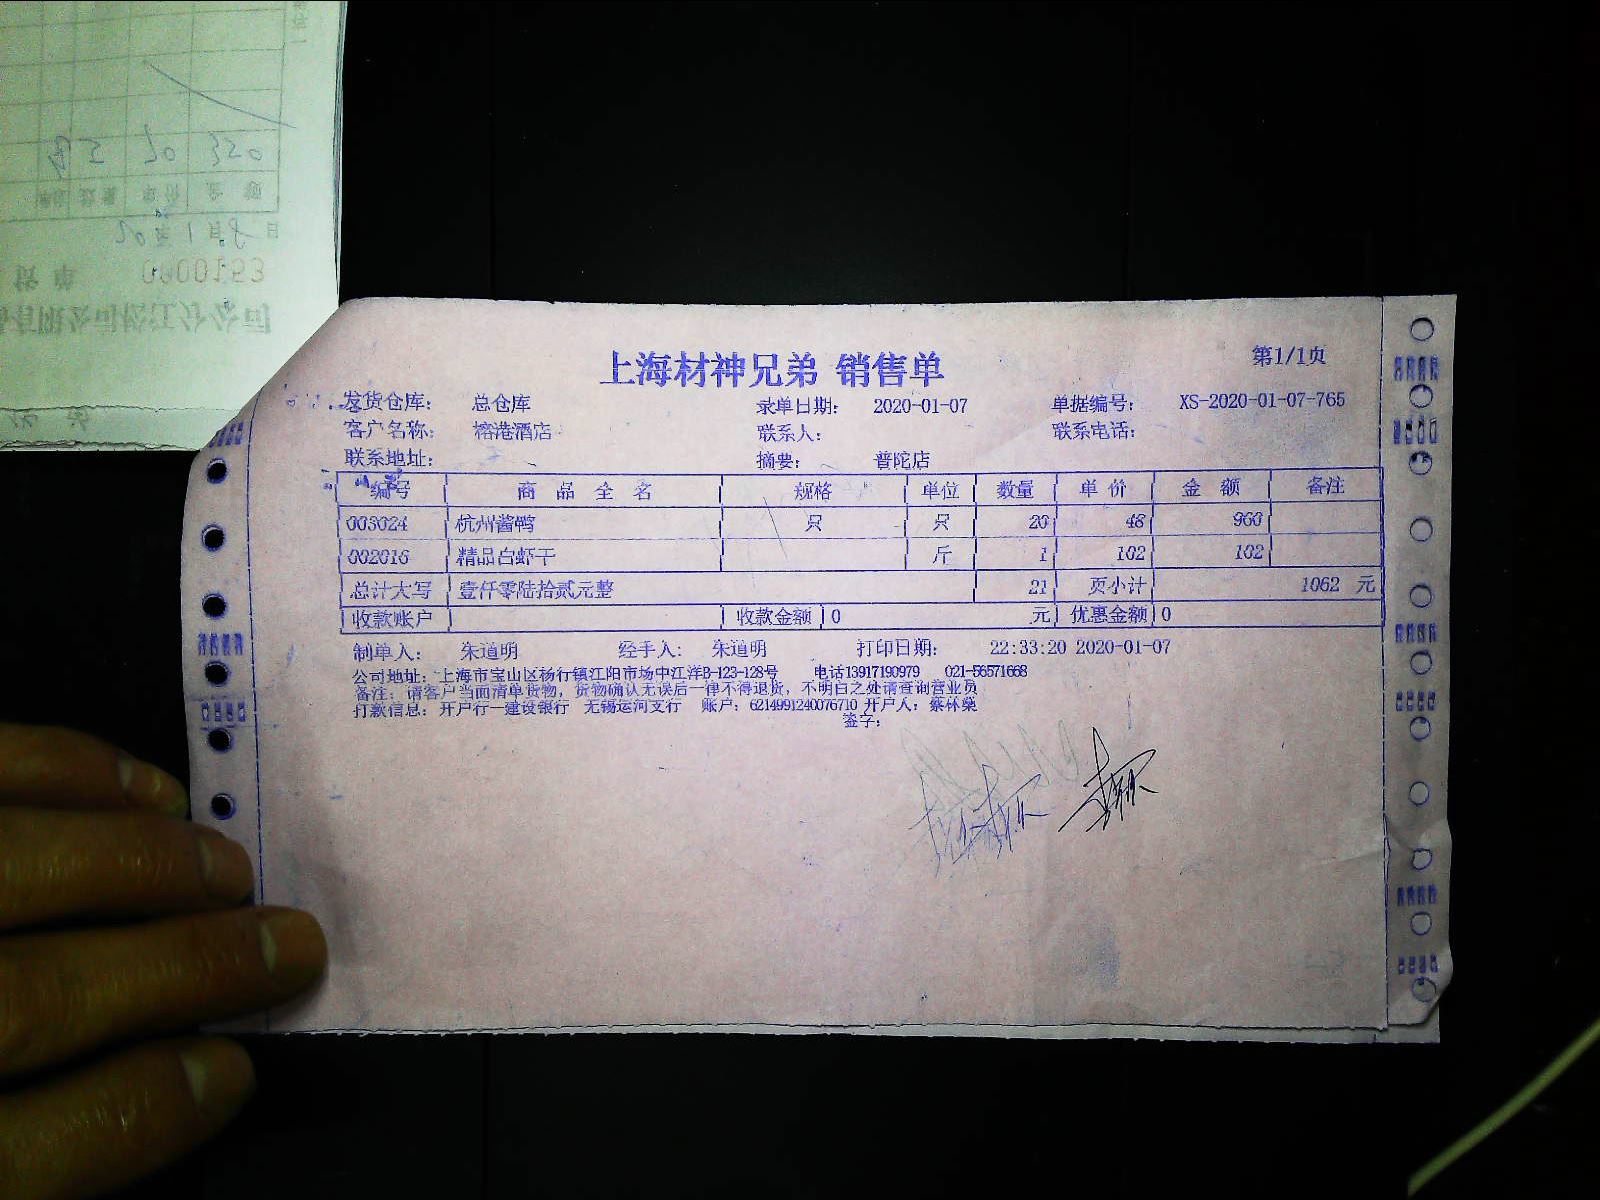 上海材神兄弟 销售单
第1/1页
发货仓库： 总仓库 录单日期： 2020-01-07 单据编号： XS-2020-01-07-765
客户名称： 榕港酒店 联系人： 联系电话：
联系地址： 摘要： 普陀店
编号 商品全名 规格 单位 数量 单价 金额 备注
003024 杭州酱鸭 只 只 20 48 960
002016 精品白虾干 斤 1 102 102
总计大写 壹仟零陆拾贰元整 21 页小计 1062 元
收款账户 收款金额 0 元 优惠金额 0
制单人： 朱道明 经手人： 朱道明 打印日期： 22:33:20 2020-01-07
公司地址：上海市宝山区杨行镇江阳市场中江洋B-123-128号 电话13917190979 021-56571668
备注：请客户当面清单货物，货物确认无误后一律不得退货，不明白之处请查询营业员
打款信息：开户行—建设银行 无锡运河支行 账户：6214991240076710 开户人：蔡林荣
签字：